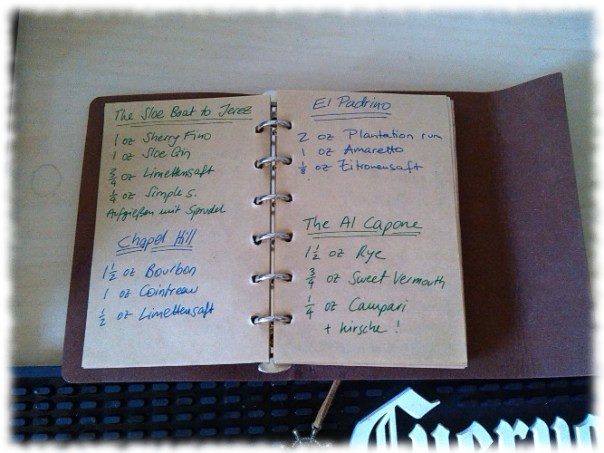 The Sloe Boat to Jerez
1 oz Sherry Fino
1 oz Sloe Gin
3/4 oz Limettensaft
1/4 oz Simple S.
Aufgießen mit Sprudel
Chapel Hill
1 1/2 oz Bourbon
1 oz Cointreau
1/2 oz Limettensaft
El Padrino
2 oz Plantation rum
1 oz Amaretto
oz Zitronensaft
The Al Capone
1 1/2 oz Rye
3/4 oz Sweet Vermouth
1/4 oz Campari
+ Kirsche!
Cuervo